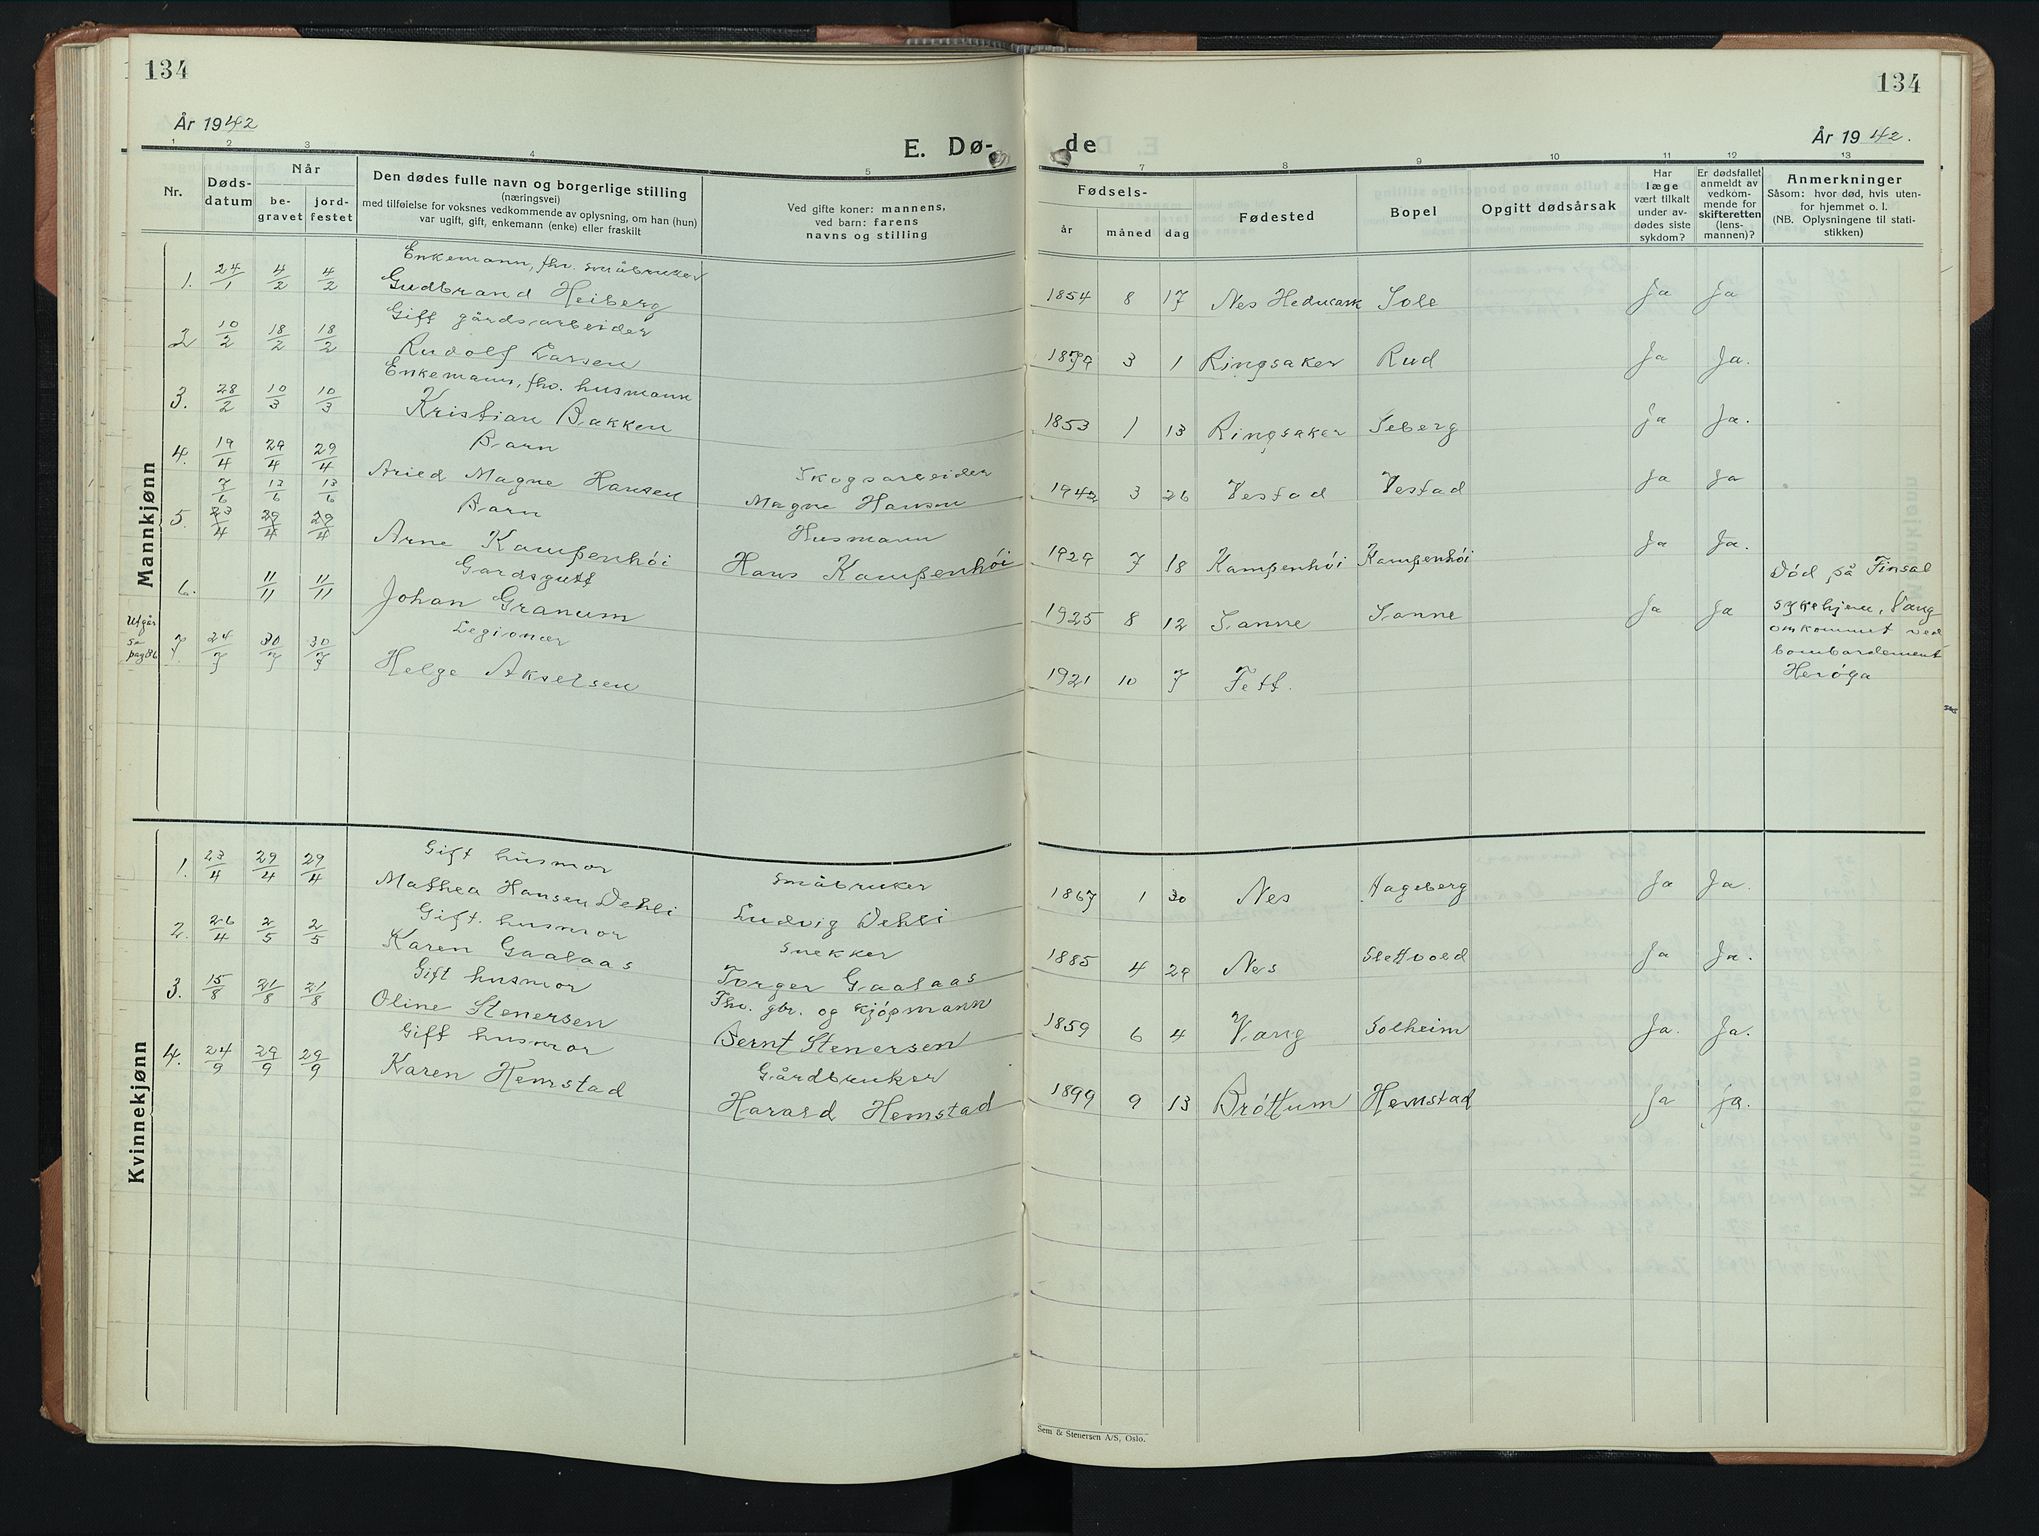 134
134
År 1942
År 1942.
E. Dø-
de
1 2 3 4 5
7 8 9 10 11 12 13
Nr.
Døds-
datum
Når
be-
gravet
jord-
festet
Den dødes fulle navn og borgerlige stilling
(næringsvei)
med tilføielse for voksnes vedkommende av oplysning, om han (hun)
var ugift, gift, enkemann (enke) eller fraskilt
Ved gifte koner: mannens,
ved barn: farens
navns og stilling
Fødsels-
år måned dag
Fødested
Bopel
Opgitt dødsårsak
Har
læge
vært tilkalt
under av-
dødes siste
sykdom?
Er dødsfallet
anmeldt av
vedkom-
mende for
skifteretten
(lens-
mannen)?
Anmerkninger
Såsom: hvor død, hvis uten-
for hjemmet o. l.
(NB. Oplysningene til stati-
stikken)
Mannkjønn
Enkemann, fhv. småbruker
1. 24/1 4/2 4/2 Gudbrand Heiberg 1854 8 17 Nes Hedmark Sole Ja Ja
Gift gårdsarbeider
2 10/2 18/2 18/2 Rudolf Larsen 1879 3 1 Ringsaker Rud Ja Ja.
Enkemann, fhv. husmann
3. 28/2 10/3 10/3 Kristian Bakken 1853 1 13 Ringsaker Seberg Ja Ja.
Barn
4. 19/4 29/4 29/4 Aried Magne Hansen Skogsarbeider
Magne Hansen 1942 3 26 Vestad Vestad Ja Ja
7/6 13/6 13/6 Barn
5. 23/4 29/4 29/4 Arne Kampenhöi Husmann
Hans Kampenhöi 1929 7 18 Kampenhöi Kampenhöi Ja Ja.
Gardsgutt
6. 11/11 11/11 Johan Granum 1925 8 12 Sanne Sanne Ja Ja
Død på Finsal
sykehjem, Vang
Utgår
se
pag 86
Legionær
7 24/7 30/7 30/7 Helge Akselsen 1921 10 7 Fett.
omkommet ved
bombardement
Herøya
Kvinnekjønn
Gift husmor
1. 23/4 29/4 29/4 Mathea Hansen Dehli Småbruker
Ludvig Dehli 1867 1 30 Nes Hageberg Ja Ja.
Gift husmor
2. 26/4 2/5 2/5 Karen Gaalaas Snekker
Torger Gaalaas 1885 4 29 Nes Slettvold Ja Ja.
Gift husmor
3. 15/8 21/8 21/8 Oline Stenersen Fhv. gbr. og kjöpmann
Bernt Stenersen 1859 6 4 Vang Solheim Ja. Ja.
Gift husmor
4. 24/9 29/9 29/9 Karen Hemstad Gårdbruker
Harald Hemstad 1899 9 13 Bröttum Hemstad Ja ja.
Sem & Stenersen A/S, Oslo.